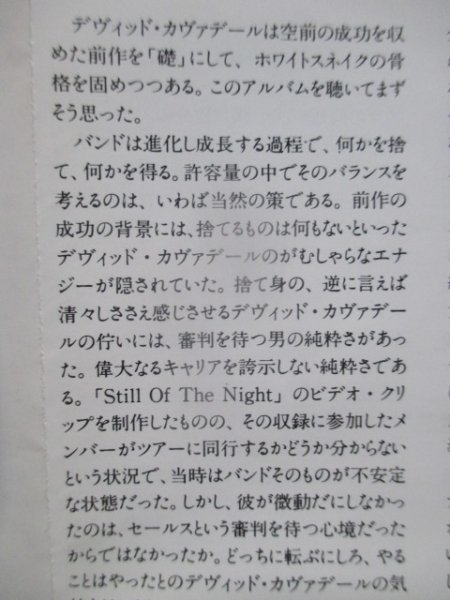 デヴィッド・カヴァデールは空前の成功を収
めた前作を「礎」にして、ホワイトスネイクの骨
格を固めつつある。このアルバムを聴いてまず
そう思った。
バンドは進化し成長する過程で、何かを捨
て、何かを得る。許容量の中でそのバランスを
考えるのは、いわば当然の策である。前作の
成功の背景には、捨てるものは何もないといった
デヴィッド・カヴァデールのがむしゃらなエナ
ジーが隠されていた。捨て身の、逆に言えば
清々しささえ感じさせるデヴィッド・カヴァデー
ルの佇いには、審判を待つ男の純粋さがあっ
た。偉大なるキャリアを誇示しない純粋さであ
る。「Still Of The Night」のビデオ・クリ
ップを制作したものの、その収録に参加したメ
ンバーがツアーに同行するかどうか分からない
という状況で、当時はバンドそのものが不安定
な状態だった。しかし、彼が微動だにしなかっ
たのは、セールスという審判を待つ心境だった
からではなかったか。どっちに転ぶにしろ、やる
ことはやったとのデヴィッド・カヴァデールの気